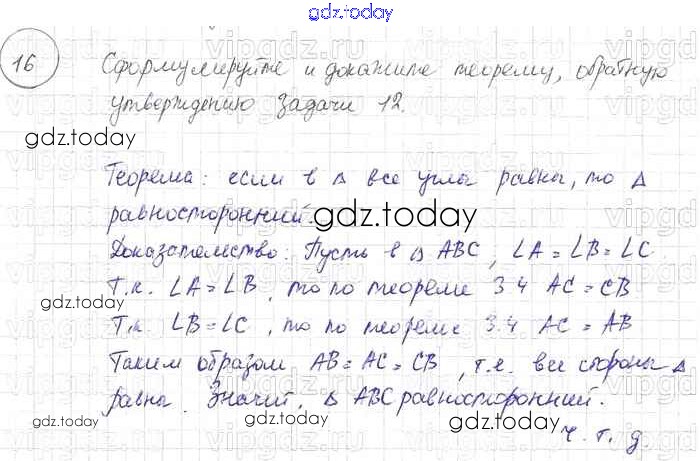 gdz.today
16
Сформулируйте и докажите теорему, обратную
утверждению задачи 12.
gdz.today
Теорема: если в △ все углы равны, то △
равносторонний.
gdz.today
Доказательство: Пусть в △ ABC, ∠A = ∠B = ∠C.
Т.к. ∠A = ∠B, то по теореме 3.4 AC = CB
gdz.today
Т.к. ∠B = ∠C, то по теореме 3.4 AC = AB
Таким образом AB = AC = CB, т.е. все стороны △
gdz.today
равны. Значит, △ ABC равносторонний.
gdz.today
gdz.today
ч. т. д.